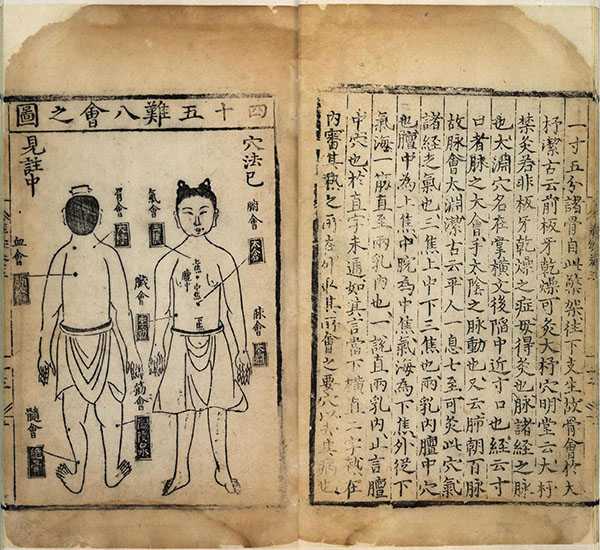 一寸五分諸骨自此檠架往下支生故骨會於大
杼潔古云前板牙乾燥可灸大杼穴明堂云大杼
禁灸若非板牙乾燥之症毋得灸也脉諸經之脉
也太淵穴名在掌橫文後陷中近寸口也經云寸
口者脉之大會手太陰之脉動也又云肺朝百脉
故脉會太淵潔古云平人一息七至可灸此穴氣
諸經之氣也三焦上中下三焦也兩乳內膻中穴
也膻中為上焦中脘為中焦氣海為下焦外從下
氣海一筋直至兩乳內也一說直兩乳內止言膻
中穴也於直字未通如其言當下橫直二字試在
內審其熱之所在外取其所會之要穴以去其病也
四十五難八會之圖
穴法已
見註中
腑會
太倉
脉會
氣會
三焦
骨會
大杼
臓會
筋會
陽陵泉
血會
髓會
絕骨